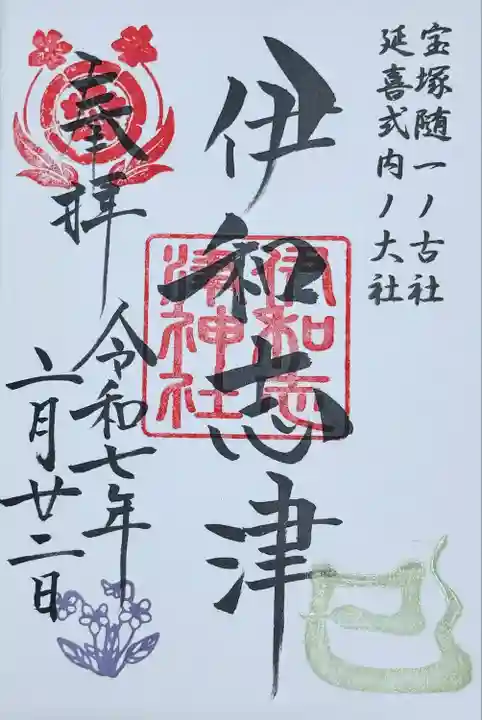 宝塚随一ノ古社
延喜式内ノ大社
伊和志津
伊和志
津神社
奉拝
令和七年
二月廿二日